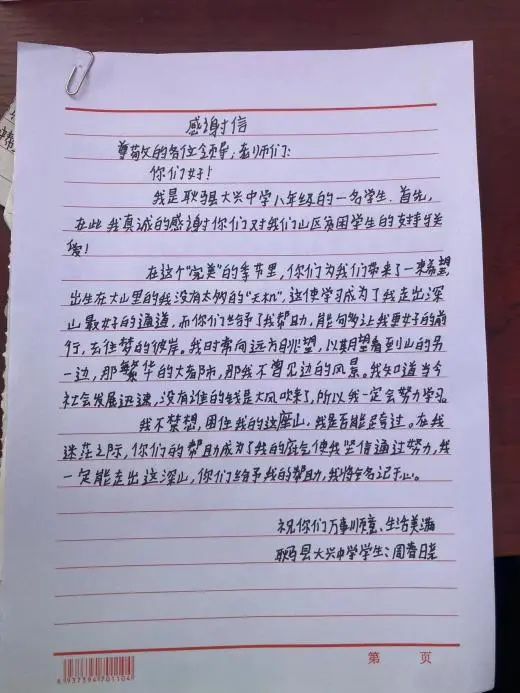 感谢信
尊敬的各位领导,老师们:
你们好!
我是耿马县大兴中学八年级的一名学生.首先,
在此我真诚的感谢你们对我们山区贫困学生的支持与关
爱!
在这个“完美”的季节里,你们为我们带来了一束希望,
出生在大山里的我没有太多的“天机”,这使学习成为了我走出深
山最好的通道,而你们给予了我帮助,能够让我更好的前
行,去往梦的彼岸。我时常向远方眺望,以期望看到山的另
一边,那繁华的大都市,那我不曾见边的风景。我知道当今
社会发展迅速,没有谁的钱是大风吹来了,所以我一定会努力学习。
我不禁想,困住我的这座山,我是否能足夸过。在我
迷茫之际,你们的帮助成为了我的底气使我坚信通过努力,我
一定能走出这深山,你们给予我的帮助,我将会名记于心。
祝你们万事顺意、生活美满
耿马县大兴中学学生:周春
第 页
6 937394 701104